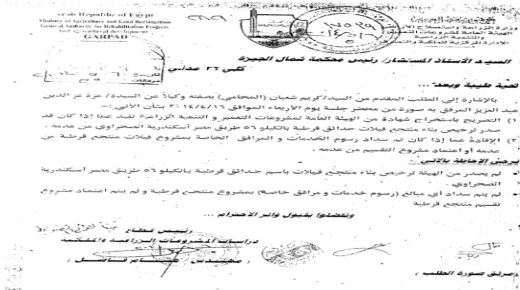 Arab Republic of Egypt
Ministry of Agriculture and Land Reclamation
General Authority for Rehabilitation Projects
And Agricultural development
GARPAD
وزارة الزراعة واستصلاح الأراضي
الهيئة العامة لمشروعات التعمير
والتنمية الزراعية
الإدارة المركزية للملكية والتصرف
السيد الأستاذ المستشار/ رئيس محكمة شمال الجيزة
كلي ٣٦ مدني
تحية طيبة وبعد...
بالإشارة إلى الطلب المقدم من السيد/كريم شعبان (المحامي) بصفته وكيلا عن السيدة/ عزة عز الدين
عبد العزيز المرفق به صورة من محضر جلسة يوم الأربعاء الموافق ٢٠١٤/٤/١٦ بشأن الآتي:-
١) التصريح باستخراج شهادة من الهيئة العامة لمشروعات التعمير و التنمية الزراعية تفيد عما إذا كان قد
صدر ترخيص بناء منتجع فيلات حدائق قرطبة بالكيلو ٥٦ طريق مصر أسكندرية الصحراوي من عدمه .
٢) الإفادة عما إذا كان تم سداد رسوم الخدمات و المرافق الخاصة بمشروع فيلات قرطبة من
عدمه أو اعتماد مشروع التقسيم من عدمه .
يرجى الإحاطة بالآتي :-
لم يصدر من الهيئة ترخيص بناء منتجع فيلات باسم حدائق قرطبة بالكيلو ٥٦ طريق مصر أسكندرية
الصحراوي.
لم يتم سداد أي مبالغ (رسوم خدمات و مرافق خاصة) بمشروع منتجع قرطبة و لم يتم اعتماد مشروع
تقسيم منتجع قرطبة
وتفضلوا بقبول وافر الاحترام ...
رئيس قطاع
دراسات المشروعات الزراعية والملكية
مهندس/
مرفق صورة الطلب